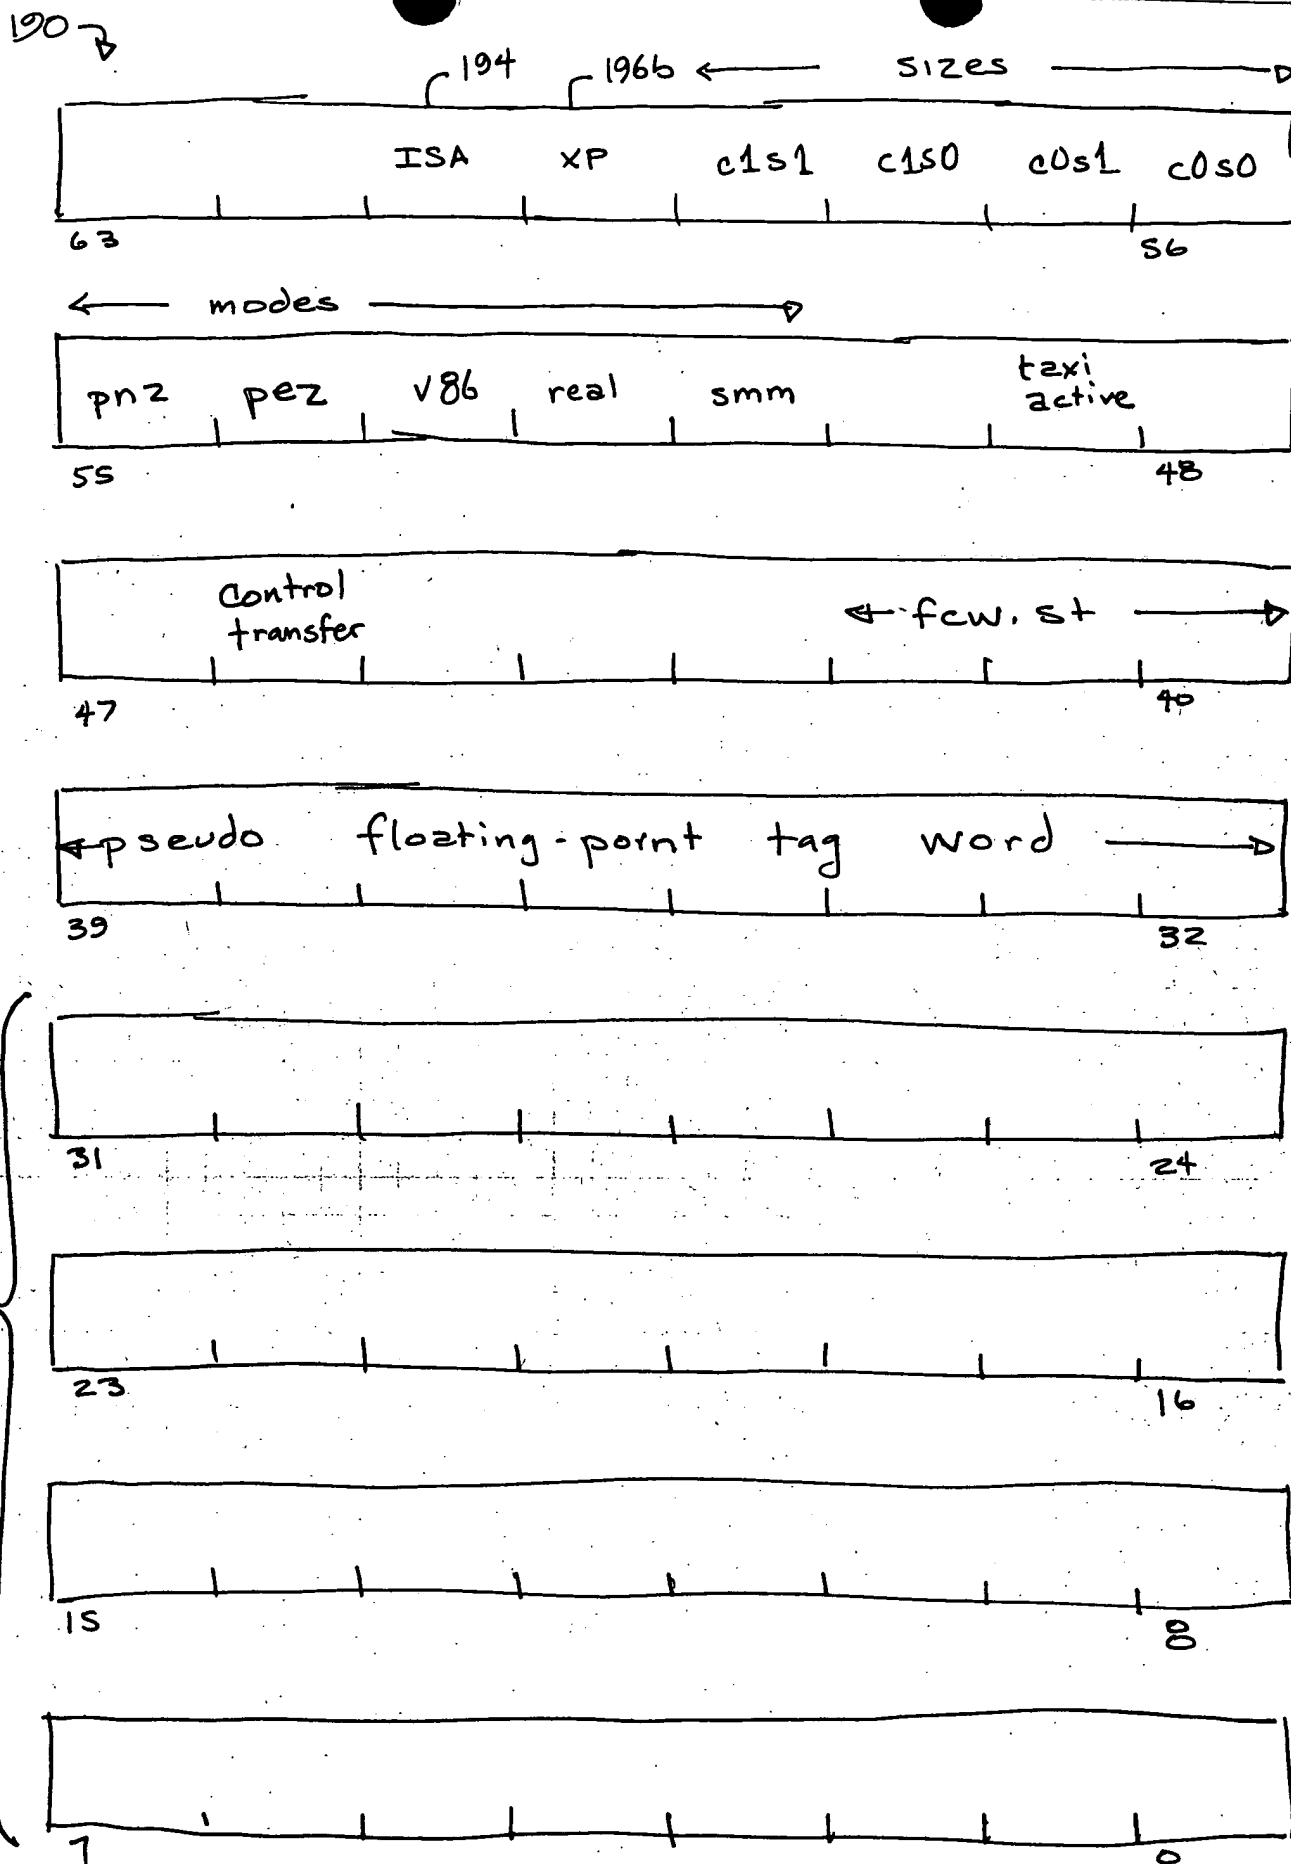 190
194 196b sizes
ISA XP c1s1 c1s0 c0s1 c0s0
63 56
modes
pnz pez v86 real smm taxi
active
55 48
Control
transfer fcw.st
47 40
pseudo floating-point tag word
39 32
31 24
23 16
15 8
7 0